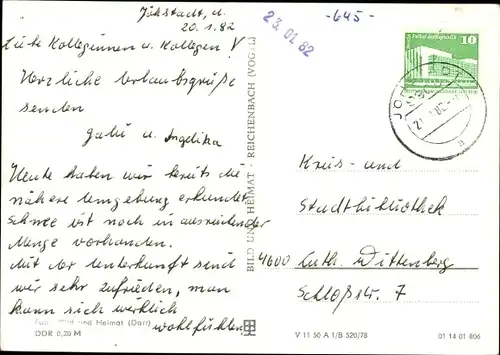 Jöhstadt, d.
20.1.82
Liebe Kolleginnen u. Kollegen!
Herzliche Urlaubsgrüße
senden
Gabi u. Angelika
Heute haben wir bereits die
nähere Umgebung erkundet
Schnee ist noch in ausreichender
Menge vorhanden.
Mit der Unterkunft sind
wir sehr zufrieden, man
kann sich wirklich
wohlfühlen
Bild und Heimat (Darr)
DDR 0,20 M
BILD UND HEIMAT REICHENBACH (VOGTL)
23.01.82
-645-
10
Kreis- und
Stadtbibliothek
4600 Luth. Wittenberg
Schloßstr. 7
V 11 50 A 1/B 520/78
01 14 01 806